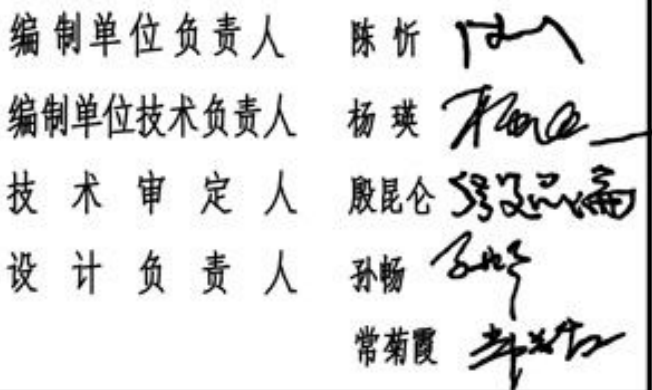 编制单位负责人 陈忻
编制单位技术负责人 杨瑛
技术审定人 殷昆仑
设计负责人 孙畅
常菊霞